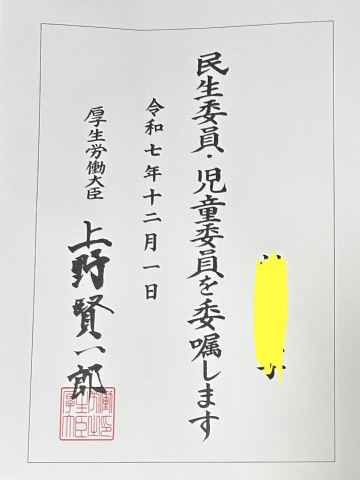 民生委員・児童委員を委嘱します
令和七年十二月一日
厚生労働大臣
上野賢一郎